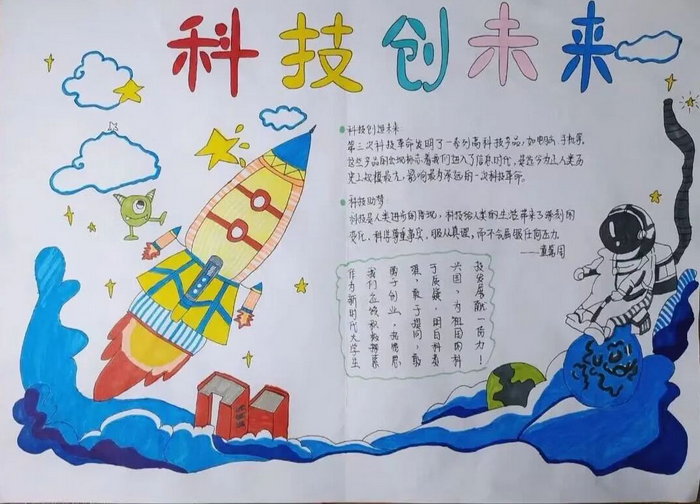 科技创未来
科技创造未来
第三次科技革命发明了一系列高科技产品,如电脑,手机等。
这些产品的出现标志着我们进入了信息时代,是迄今为止人类历
史上规模最大,影响最为深远的一次科技革命。
科技助梦
科技是人类进步的体现,科技给人类的生活带来了深刻的
变化,科学尊重事实,服从真理,而不会屈服任何压力
——童第周
作为新时代大学生
我们应该积极探索
勇于创业,
敢于提问,敢
于质疑,用
兴国,为祖国的科
技发展献一份力!